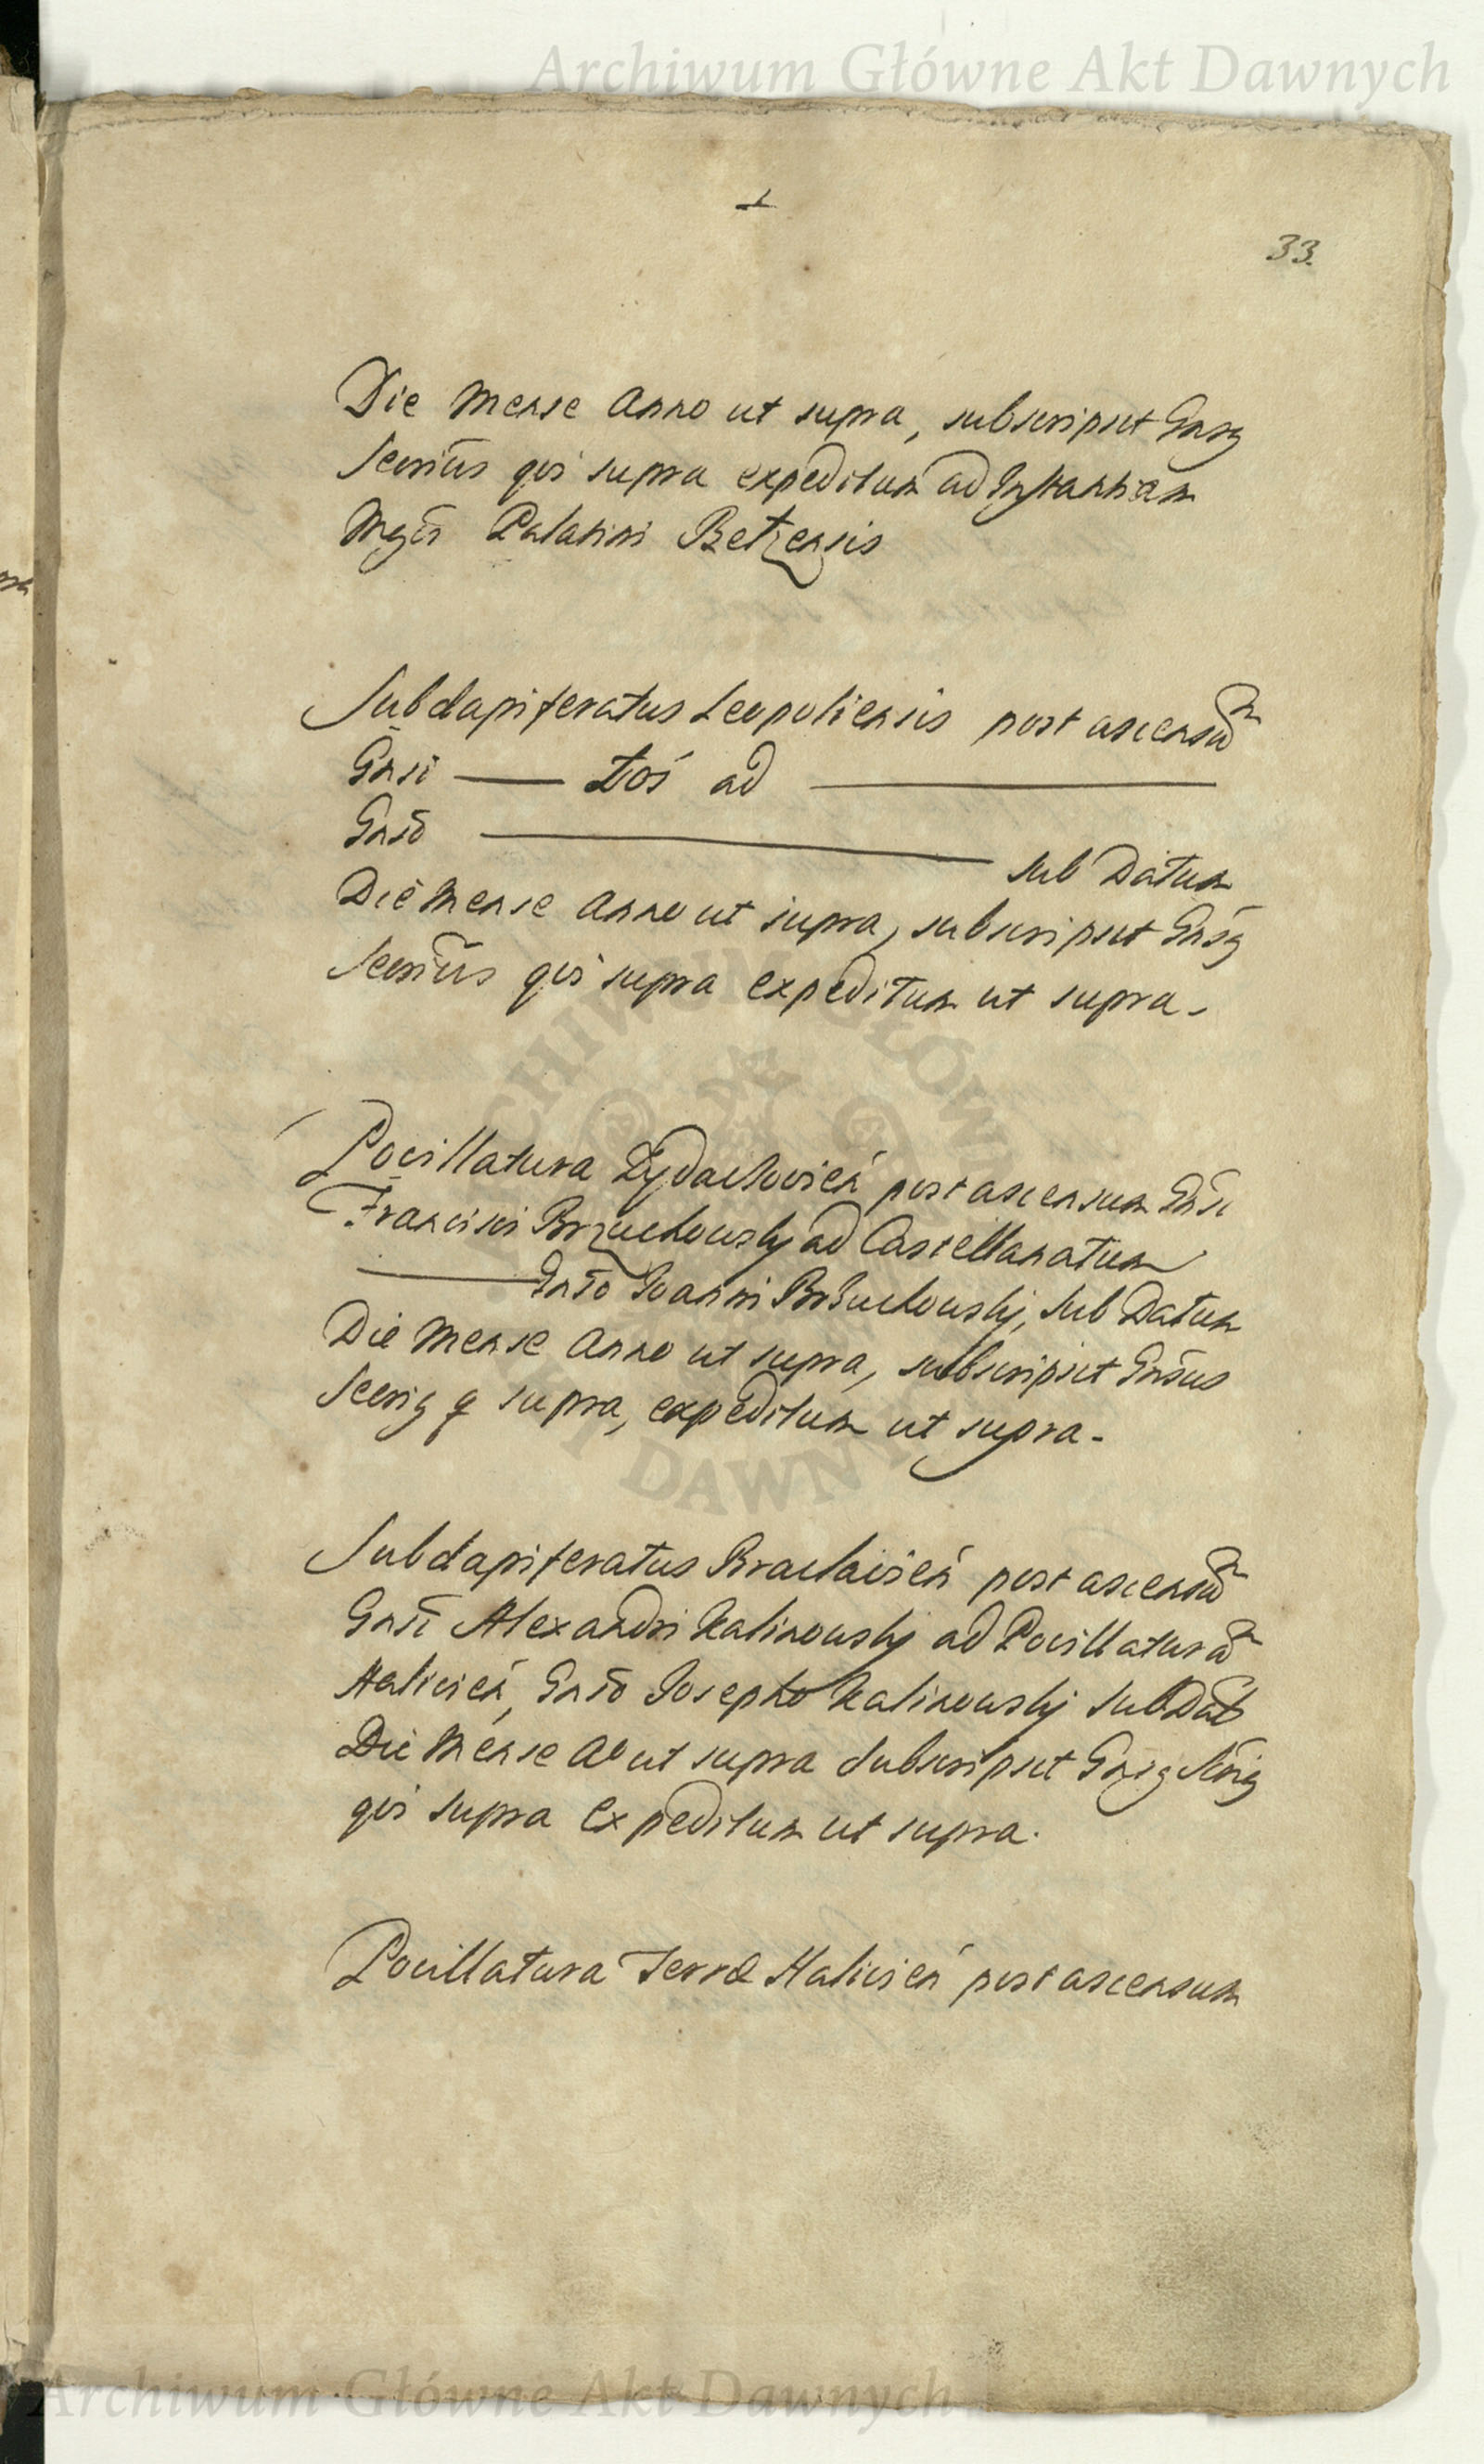 Archiwum Główne Akt Dawnych
33.
Die Mense Anno ut supra, subscripsit Gnsq
Secrius qui supra expeditum ad Instantiam
Mgci Palatini Betzensis
Subdapiferatus Leopoliensis post ascensum
Gnsi — Łoś ad —
Gnso — sub Datum
Die Mense Anno ut supra, subscripsit Gnsq
Secrius qui supra expeditum ut supra.
Pocillatura Zydacovien post ascensum Gnsi
Francisci Brzuchowsky ad Castellanatum
— Gnso Joanni Brzuchowsky, sub Datum
Die Mense Anno ut supra, subscripsit Gnsus
Secriq q supra, expeditum ut supra.
Subdapiferatus Braclavien post ascensum
Gnsi Alexandri Kalinowsky ad Pocillaturam
Halicien, Gnso Josepho Kalinowsky sub Dat
Die Mense Ao ut supra subscripsit Gnsq
qui supra expeditum ut supra.
Pocillatura Terræ Halicien post ascensum
Archiwum Główne Akt Dawnych